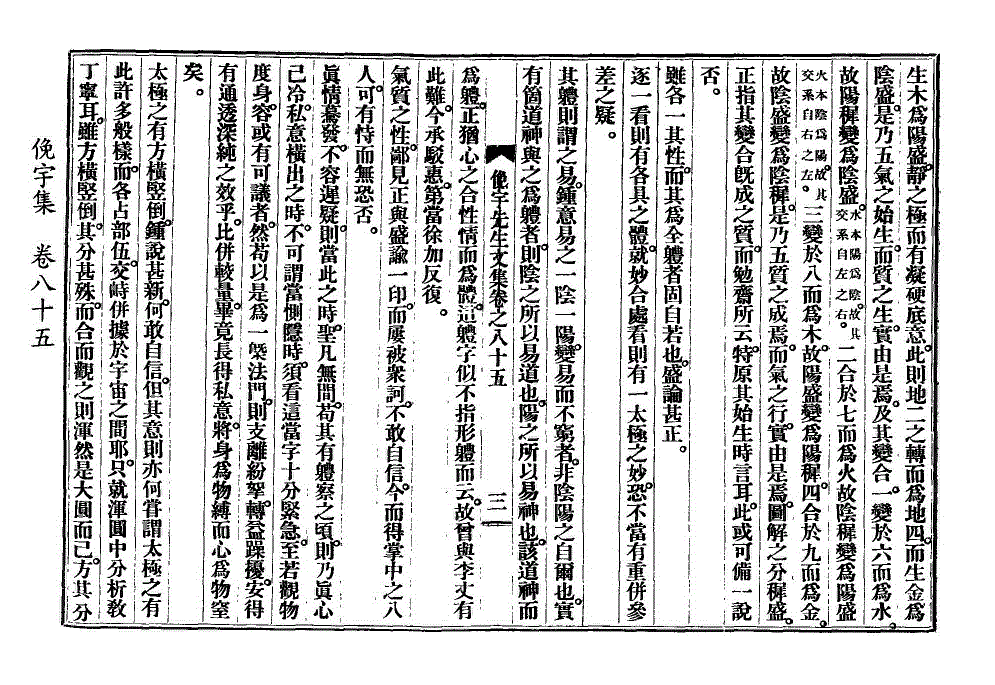 生木爲陽盛。靜之極而有凝硬底意。此則地二之轉而爲地四。而生金爲
陰盛。是乃五氣之始生。而質之生。實由是焉。及其變合。一變於六而爲水。
故陽穉變爲陰盛。水本陽爲陰。故其交系自左之右。二合於七而爲火。故陰穉變爲陽盛
火本陰爲陽。故其交系自右之左。三變於八而爲木。故陽盛變爲陽穉。四合於九而爲金。
故陰盛變爲陰穉。是乃五質之成焉。而氣之行。實由是焉。圖解之分穉盛。
正指其變合旣成之質。而勉齋所云。特原其始生時言耳。此或可備一說
否。
雖各一其性。而其爲全體者固自若也。盛論甚正。
逐一看則有各具之體。就妙合處看則有一太極之妙。恐不當有重併參
差之疑。
其軆則謂之易。鍾意易之一陰一陽。變易而不窮者。非陰陽之自爾也。實
有箇道神與之爲軆者。則陰之所以易道也。陽之所以易神也。該道神而
俛宇先生文集卷之八十五
三一
爲軆。正猶心之合性情而爲體。這軆字似不指形軆而云。故曾與李丈有
此難。今承駁惠。第當徐加反復。
氣質之性。鄙見正與盛諭一印。而屢被衆訶。不敢自信。今而得掌中之八
人。可有恃而無恐否。
眞情驀發。不容遲疑。則當此之時。聖凡無間。苟其有軆察之頃。則乃眞心
已冷。私意橫出之時。不可謂當惻隱時。須看這當字十分緊急。至若觀物
度身。容或有可議者。然苟以是爲一槩法門。則支離紛拏。轉益躁擾。安得
有通透深純之效乎。比併較量。畢竟長得私意。將身爲物縛而心爲物窒
矣。
太極之有方橫竪倒。鍾說甚新。何敢自信。但其意則亦何甞謂太極之有
此許多般樣。而各占部伍。交峙併據於宇宙之間耶。只就渾圓中分析敎
丁寧耳。雖方橫竪倒。其分甚殊。而合而觀之則渾然是大圓而已。方其分
俛宇集 卷八十五